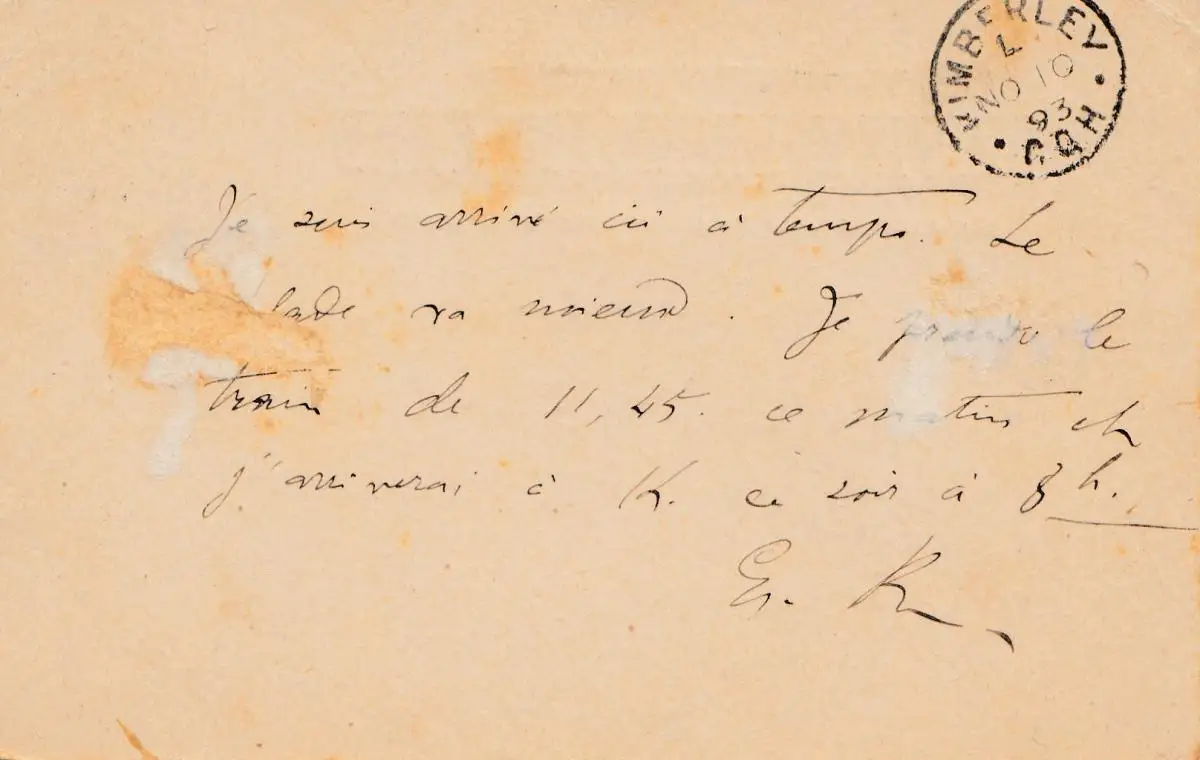 KIMBERLEY
L
NO 10
93
CGH
Je suis arrivé ici à temps. Le
lade va mieux. Je prends le
train de 11,45. ce matin et
j'arriverai à K. ce soir à 8 h.